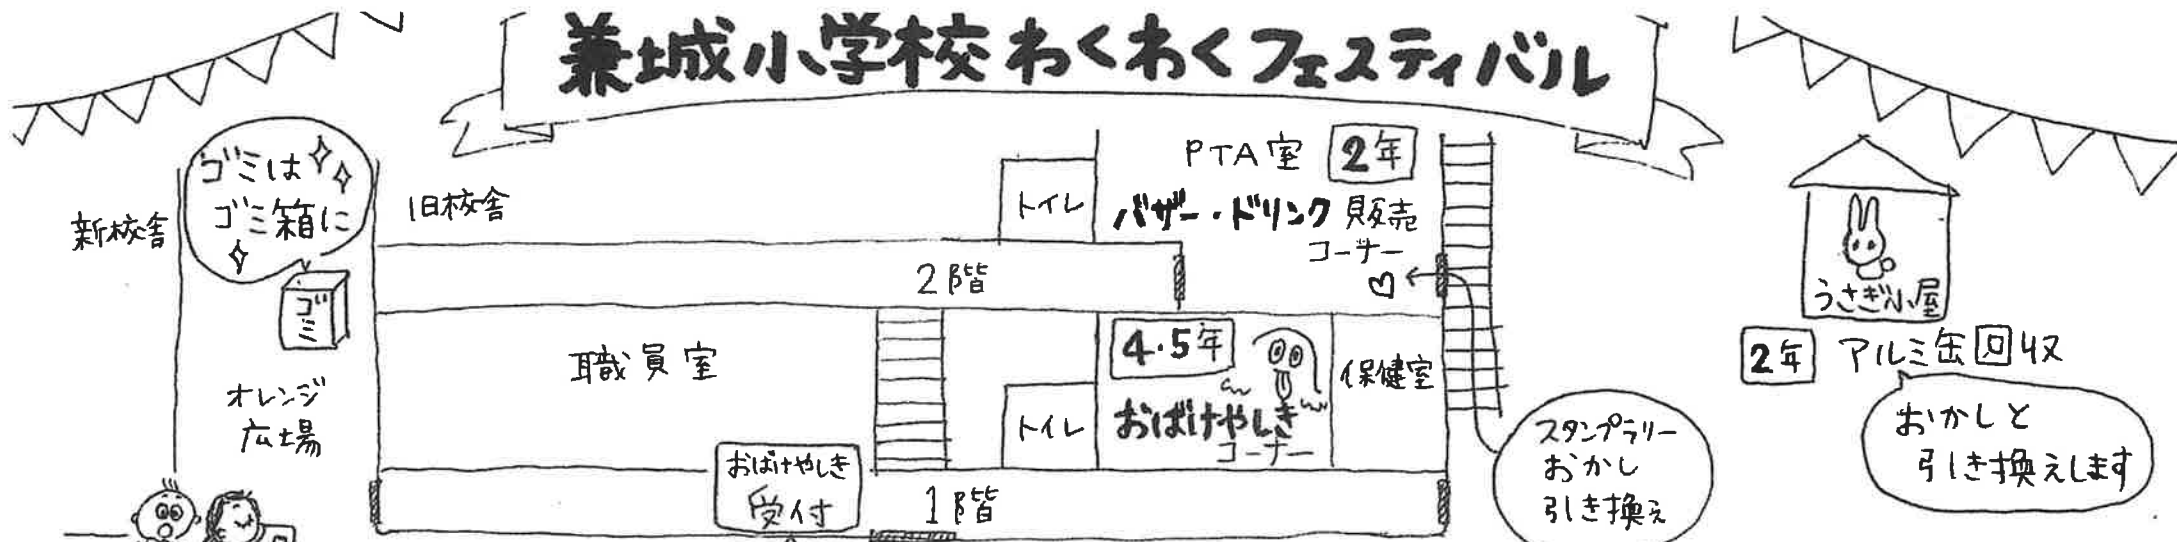 兼城小学校わくわくフェスティバル
ゴミは
ゴミ箱に
ゴミ
新校舎
旧校舎
オレンジ
広場
トイレ
PTA室 2年
バザー・ドリンク 販売
コーナー
2階
職員室
4・5年
おばけやしき
コーナー
トイレ
保健室
おばけやしき
受付
1階
スタンプラリー
おかし
引き換え
うさぎ小屋
2年 アルミ缶回収
おかしと
引き換えします